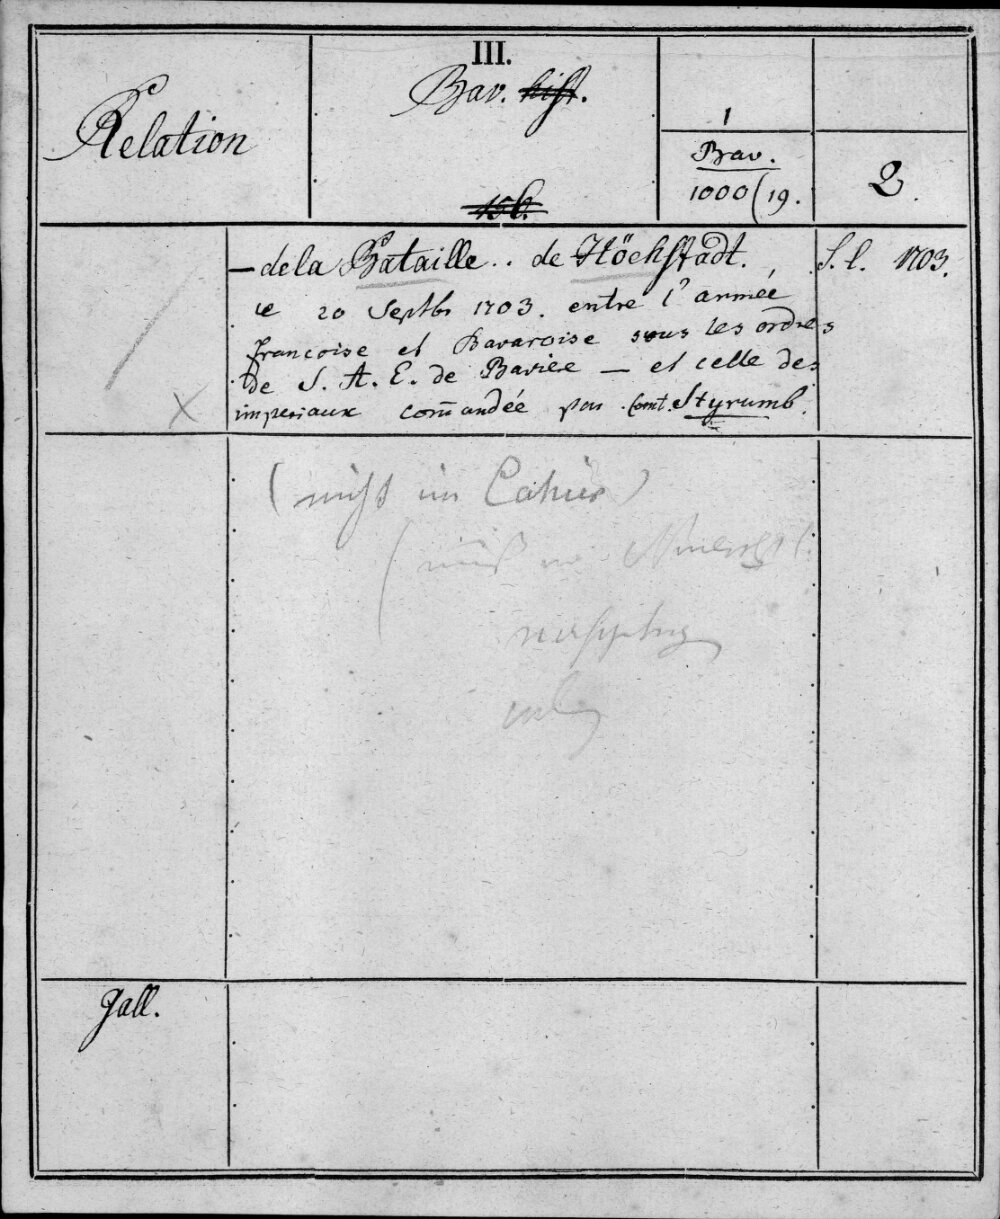 III.
Relation
Bav. hist.
15 b.
1
Bav.
1000 (19.
2
— de la Bataille .. de Höchstädt.
S. l. 1703.
le 20 Septbr 1703. entre l'armée
francoise et Bavaroise sous les ordres
de S. A. E. de Baviere — et celle des
imperiaux com̄andée par Comt. Styrumb.
(nicht im Cahier)
Gall.